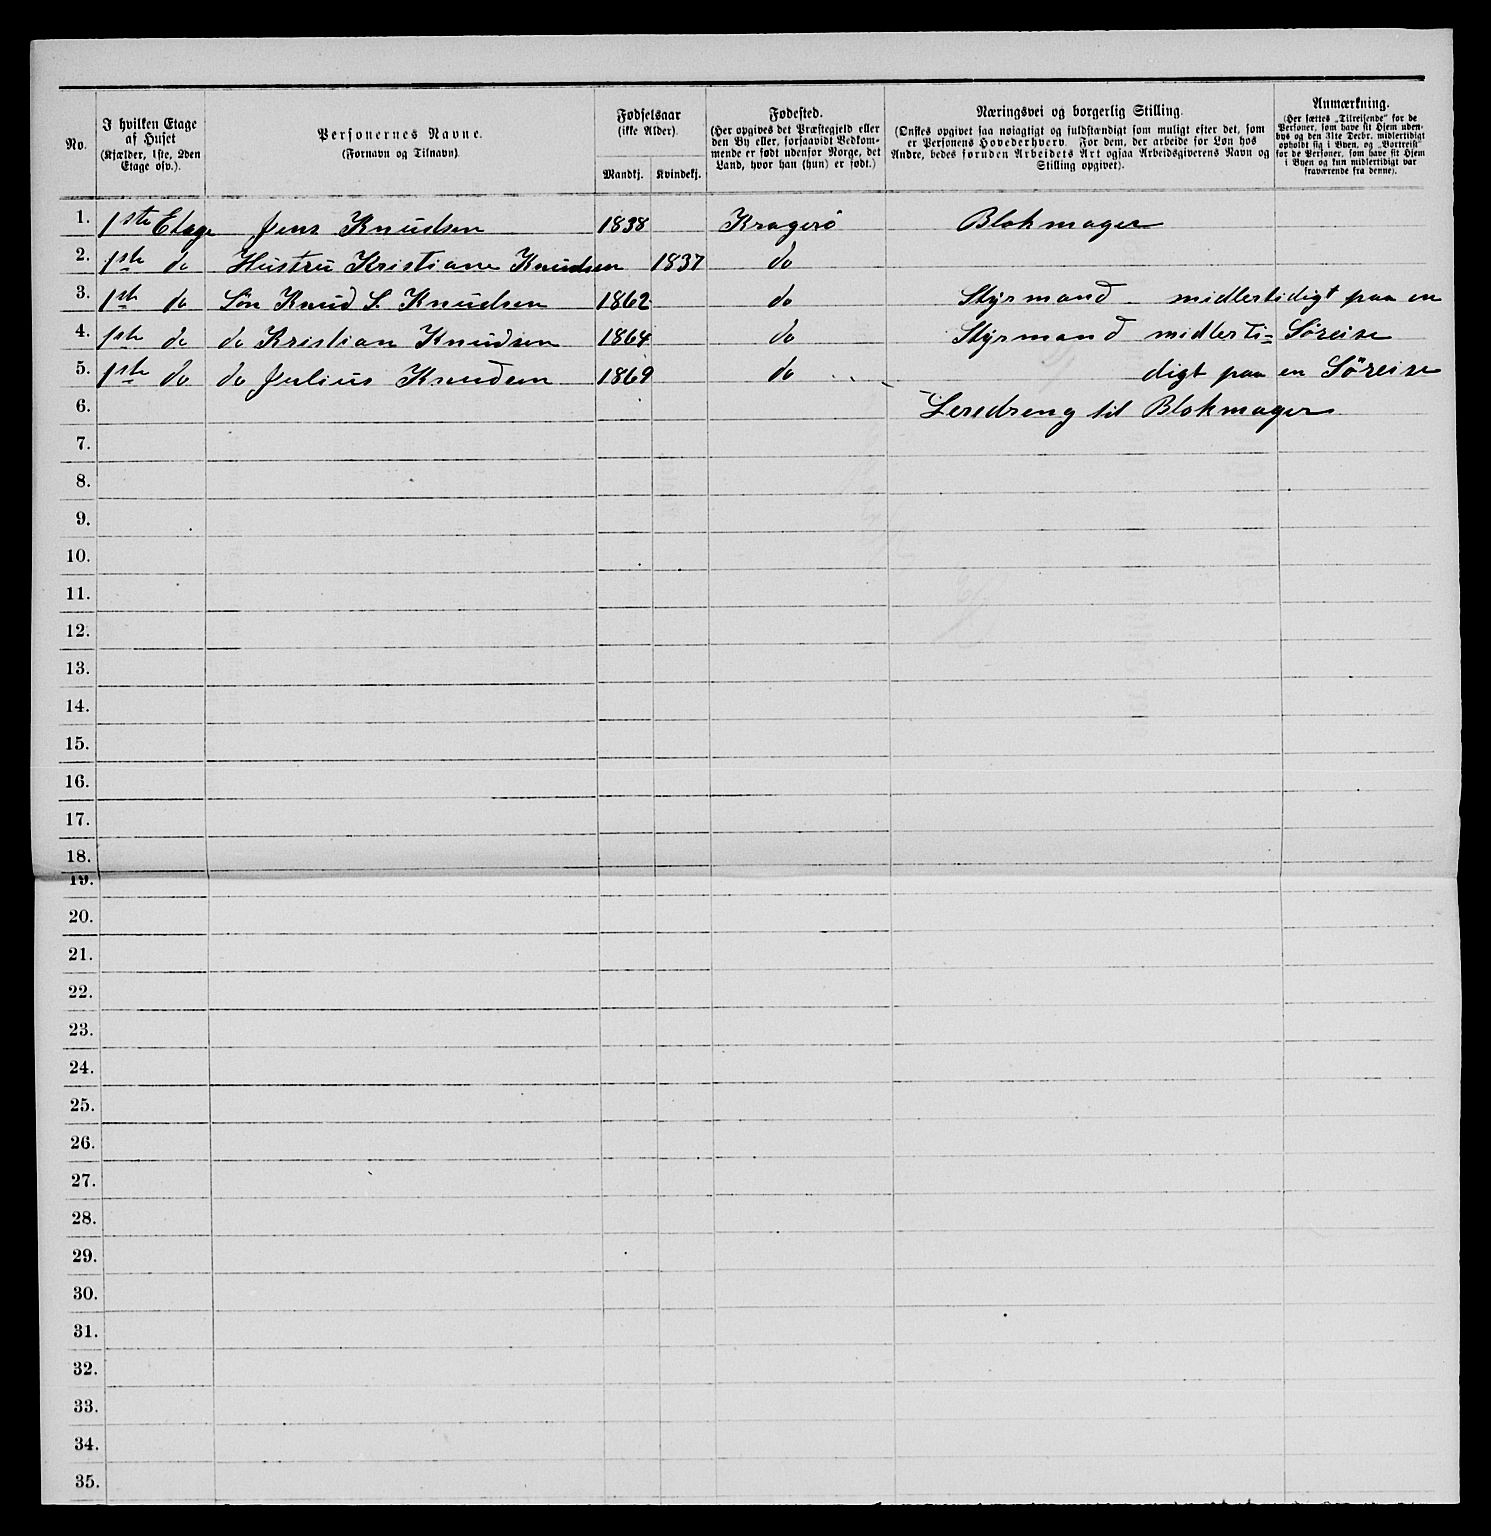 No.
I hvilken Etage
af Huset
(Kjælder, 1ste, 2den
Etage osv.).
Personernes Navne.
(Fornavn og Tilnavn).
Fødselsaar
(ikke Alder)
Mandkj. Kvindekj.
Fødested.
(Her opgives det Præstegjeld eller
den By eller, forsaavidt Vedkom-
mende er født udenfor Norge, det
Land, hvor han (hun) er født.)
Næringsvei og borgerlig Stilling.
(Ønskes opgivet saa nøiagtigt og fuldstændigt som muligt efter det, som
er Personens Hovederhverv. For dem, der arbeide for Løn hos
Andre, bedes foruden Arbeidets Art ogsaa Arbeidsgiverens Navn og
Stilling opgivet).
Anmærkning.
(Her sættes „Tilreisende“ for de
Personer, som have sit Hjem uden-
bys og den 31te Decbr. midlertidigt
opholdt sig i Byen, og „Bortreist“
for de Personer, som have sit Hjem
i Byen og kun midlertidigt var
fraværende fra denne).
1. 1ste Etage Jens Knudsen 1838 Kragerö Blokmager
2. 1ste do Hustru Kristiane Knudsen 1837 do
3. 1ste do Sön Knud S. Knudsen 1862 do Styrmand midlertidigt paa en
4. 1ste do do Kristian Knudsen 1864 do Styrmand midlerti= Söreise
5. 1ste do do Julius Knudsen 1869 do digt paa en Söreise
6. Leredreng til Blokmager
7.
8.
9.
10.
11.
12.
13.
14.
15.
16.
17.
18.
19.
20.
21.
22.
23.
24.
25.
26.
27.
28.
29.
30.
31.
32.
33.
34.
35.